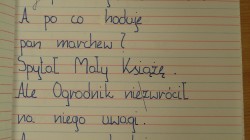 A po co hoduje
pan marchew?
Spytał Mały Książę.
Ale Ogrodnik niezwrócił
na niego uwagi.